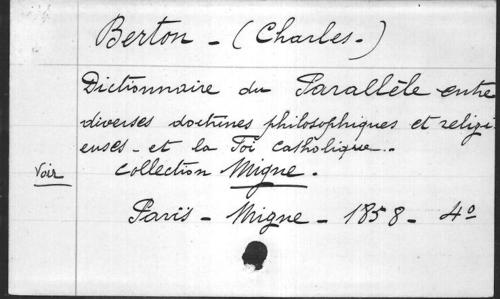 Berton - (Charles-)
Dictionnaire du Parallèle entre
diverses doctrines philosophiques et religi
euses - et la Foi catholique..
Voir collection Migne.
Paris - Migne - 1858 - 4º